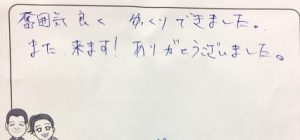 雰囲気良く ゆっくりできました。
また来ます! ありがとうございました。